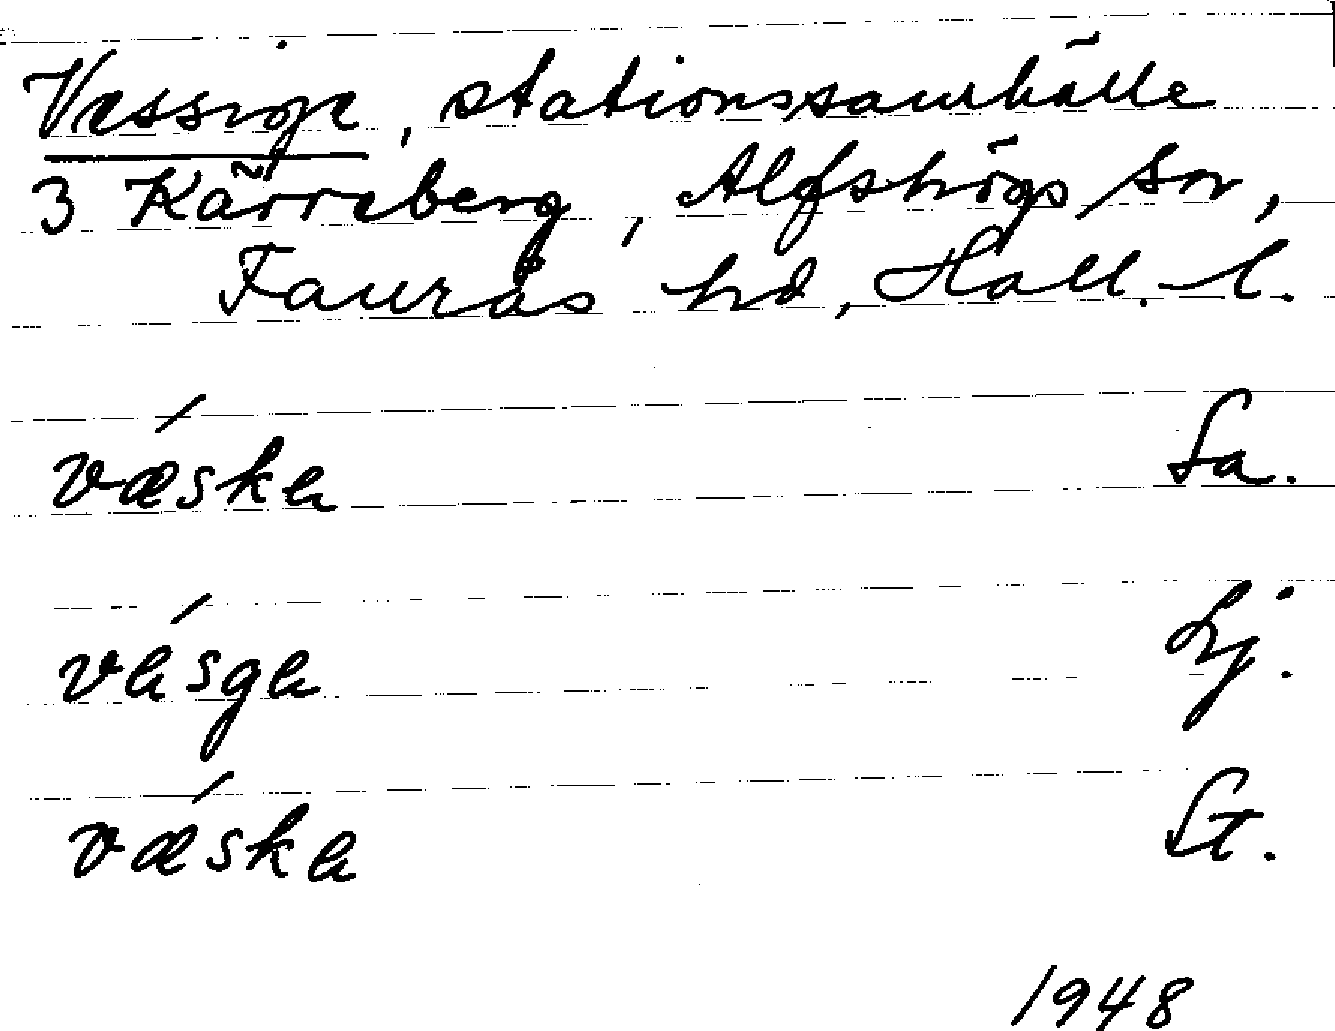 Vessige, stationssamhälle
3 Kärreberg, Alfshögs sn,
Faurås hd, Hall. l.
vǽska Sa.
vásga Hj.
vǽska St.
1948